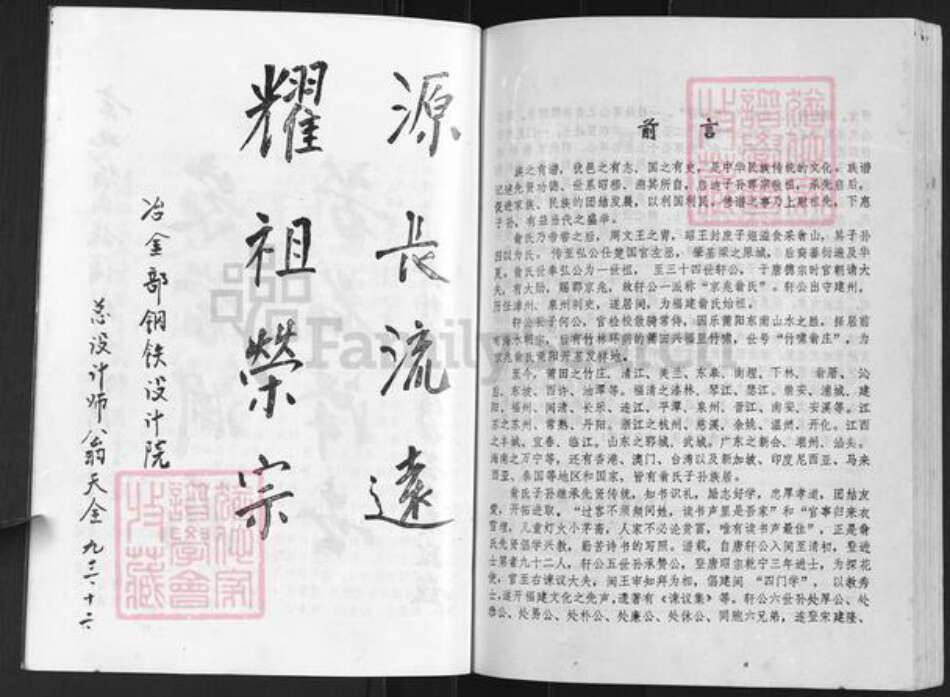 源長流遠
耀祖榮宗
冶金部钢铁设计院
总设计师翁天金
前言
族之有谱，犹邑之有志、国之有史，是中华民族传统的文化。族谱
记述先贤功德、世系昭穆、溯其所自，启迪子孙尊宗敬祖，承先启后，
促进家族、民族的团结发展，以利国利民。修谱之事乃上慰祖先，下惠
子孙，有益当代之盛举。
翁氏乃帝喾之后，周文王之胄，昭王封庶子姬溢食采翁山，其子孙
因以为氏。传至弘公仕楚国官左丞，肇基
夏。翁氏世奉弘公为一世祖，至三十四世轩公，于唐德宗时官朝请大
夫，有大勋，赐郡京兆，故轩公一派称“京兆翁氏”。轩公出守建州，
历任漳州、泉州刺史，遂居闽，为福建翁氏始祖。
轩公长子何公，官检校散骑常侍，因乐莆阳东南山水之胜，择居前
有海水朝宗，后有竹林环荫的莆田兴福里竹啸，世号“竹啸翁庄”，为
京兆翁氏莆阳开基发祥地。
至今，莆田之竹庄、清江、美兰、东皋、南埕、下林、翁厝、沁
后、东坡、西许、油潭等。福清之漆林、琴江、瑟江。崇安、浦城、建
阳、福州、闽清、长乐、连江、平潭、泉州、晋江、南安、安溪等。江
苏之苏州、常熟、丹阳。浙江之杭州、慈溪、余姚、温州、开化。江西
之丰城、宜春、临江。山东之郓城、武城。广东之新会、潮州、汕头。
海南之万宁等，还有香港、澳门、台湾以及新加坡、印度尼西亚、马来
西亚、泰国等地区和国家，皆有翁氏子孙族居。
翁氏子孙继承先贤传统，知书识礼，励志好学，忠厚孝道，团结友
爱，开拓进取。“过客不须频问姓，读书声里是吾家”和“官事归来衣
雪埋，儿童灯火小茅斋，人家不必论贫富，唯有读书声最佳”，正是翁
氏先贤倡学兴教，勤苦诗书的写照。谱载，自唐轩公入闽至清初，登进
士第者九十二人，轩公五世孙承赞公，登唐昭宗乾宁三年进士，为探花
使，官至右谏议大夫，闽王审知拜为相，倡建闽“四门学”，以教秀
士，遂开福建文化之先声，遗著有《谏议集》等。轩公六世孙处厚公、处
恭公、处易公、处朴公、处廉公、处休公、同胞六兄弟，连登宋建隆、
FamilySearch